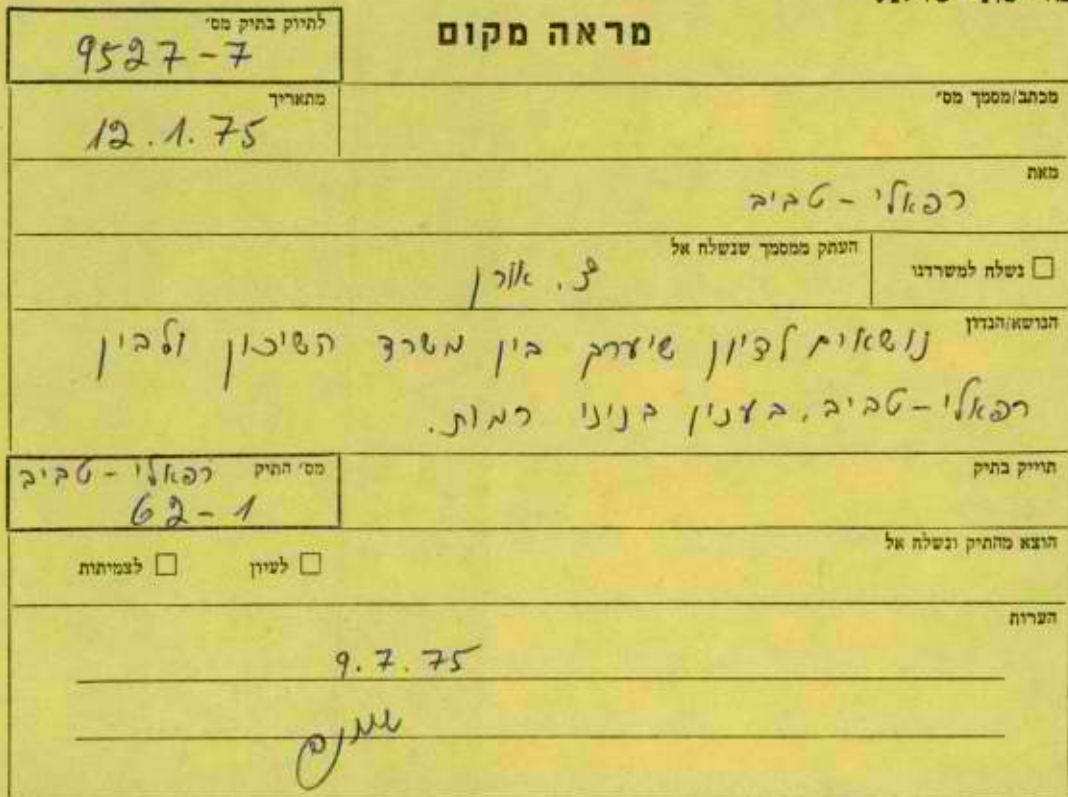 מראה מקום
לתיוק בתיק מס׳
9527-7
מכתב/מסמך מס׳
מתאריך
12.1.75
מאת
רפאלי - טביב
נשלח למשרדנו
העתק ממסמך שנשלח אל
צ. אורן
הנושא/הנדון
נושאים לדיון שיערך בין משרד השיכון ולבין
רפאלי - טביב. בענין בניני רמות.
תוייק בתיק
מס׳ התיק רפאלי - טביב
62-1
הוצא מהתיק ונשלח אל
לעיון
לצמיתות
הערות
9.7.75